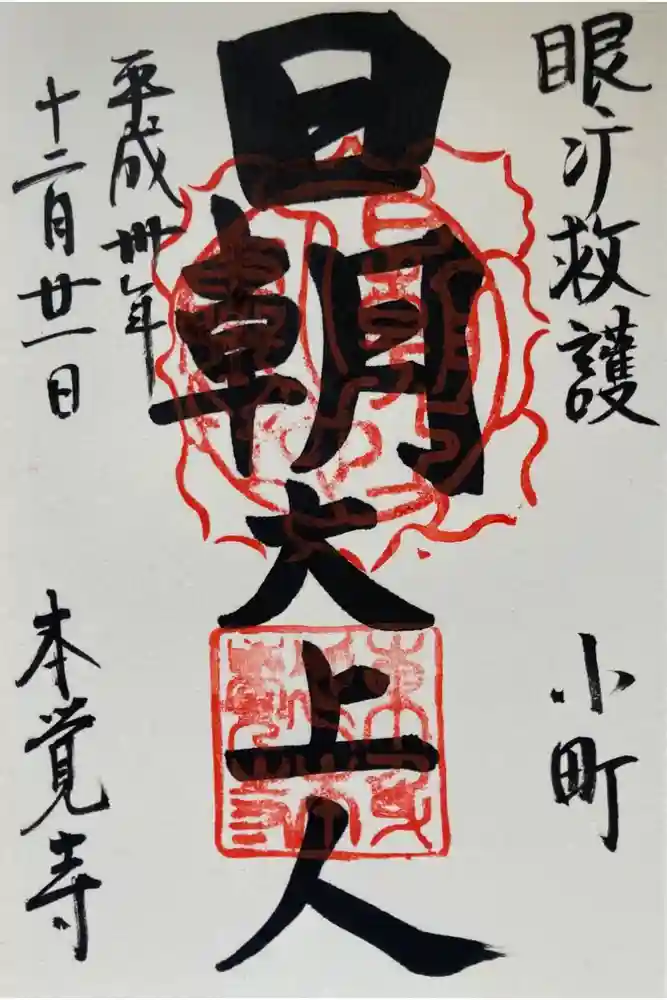 眼疔救護
小町
日朝大上人
平成卅年
十二月廿一日
本覚寺